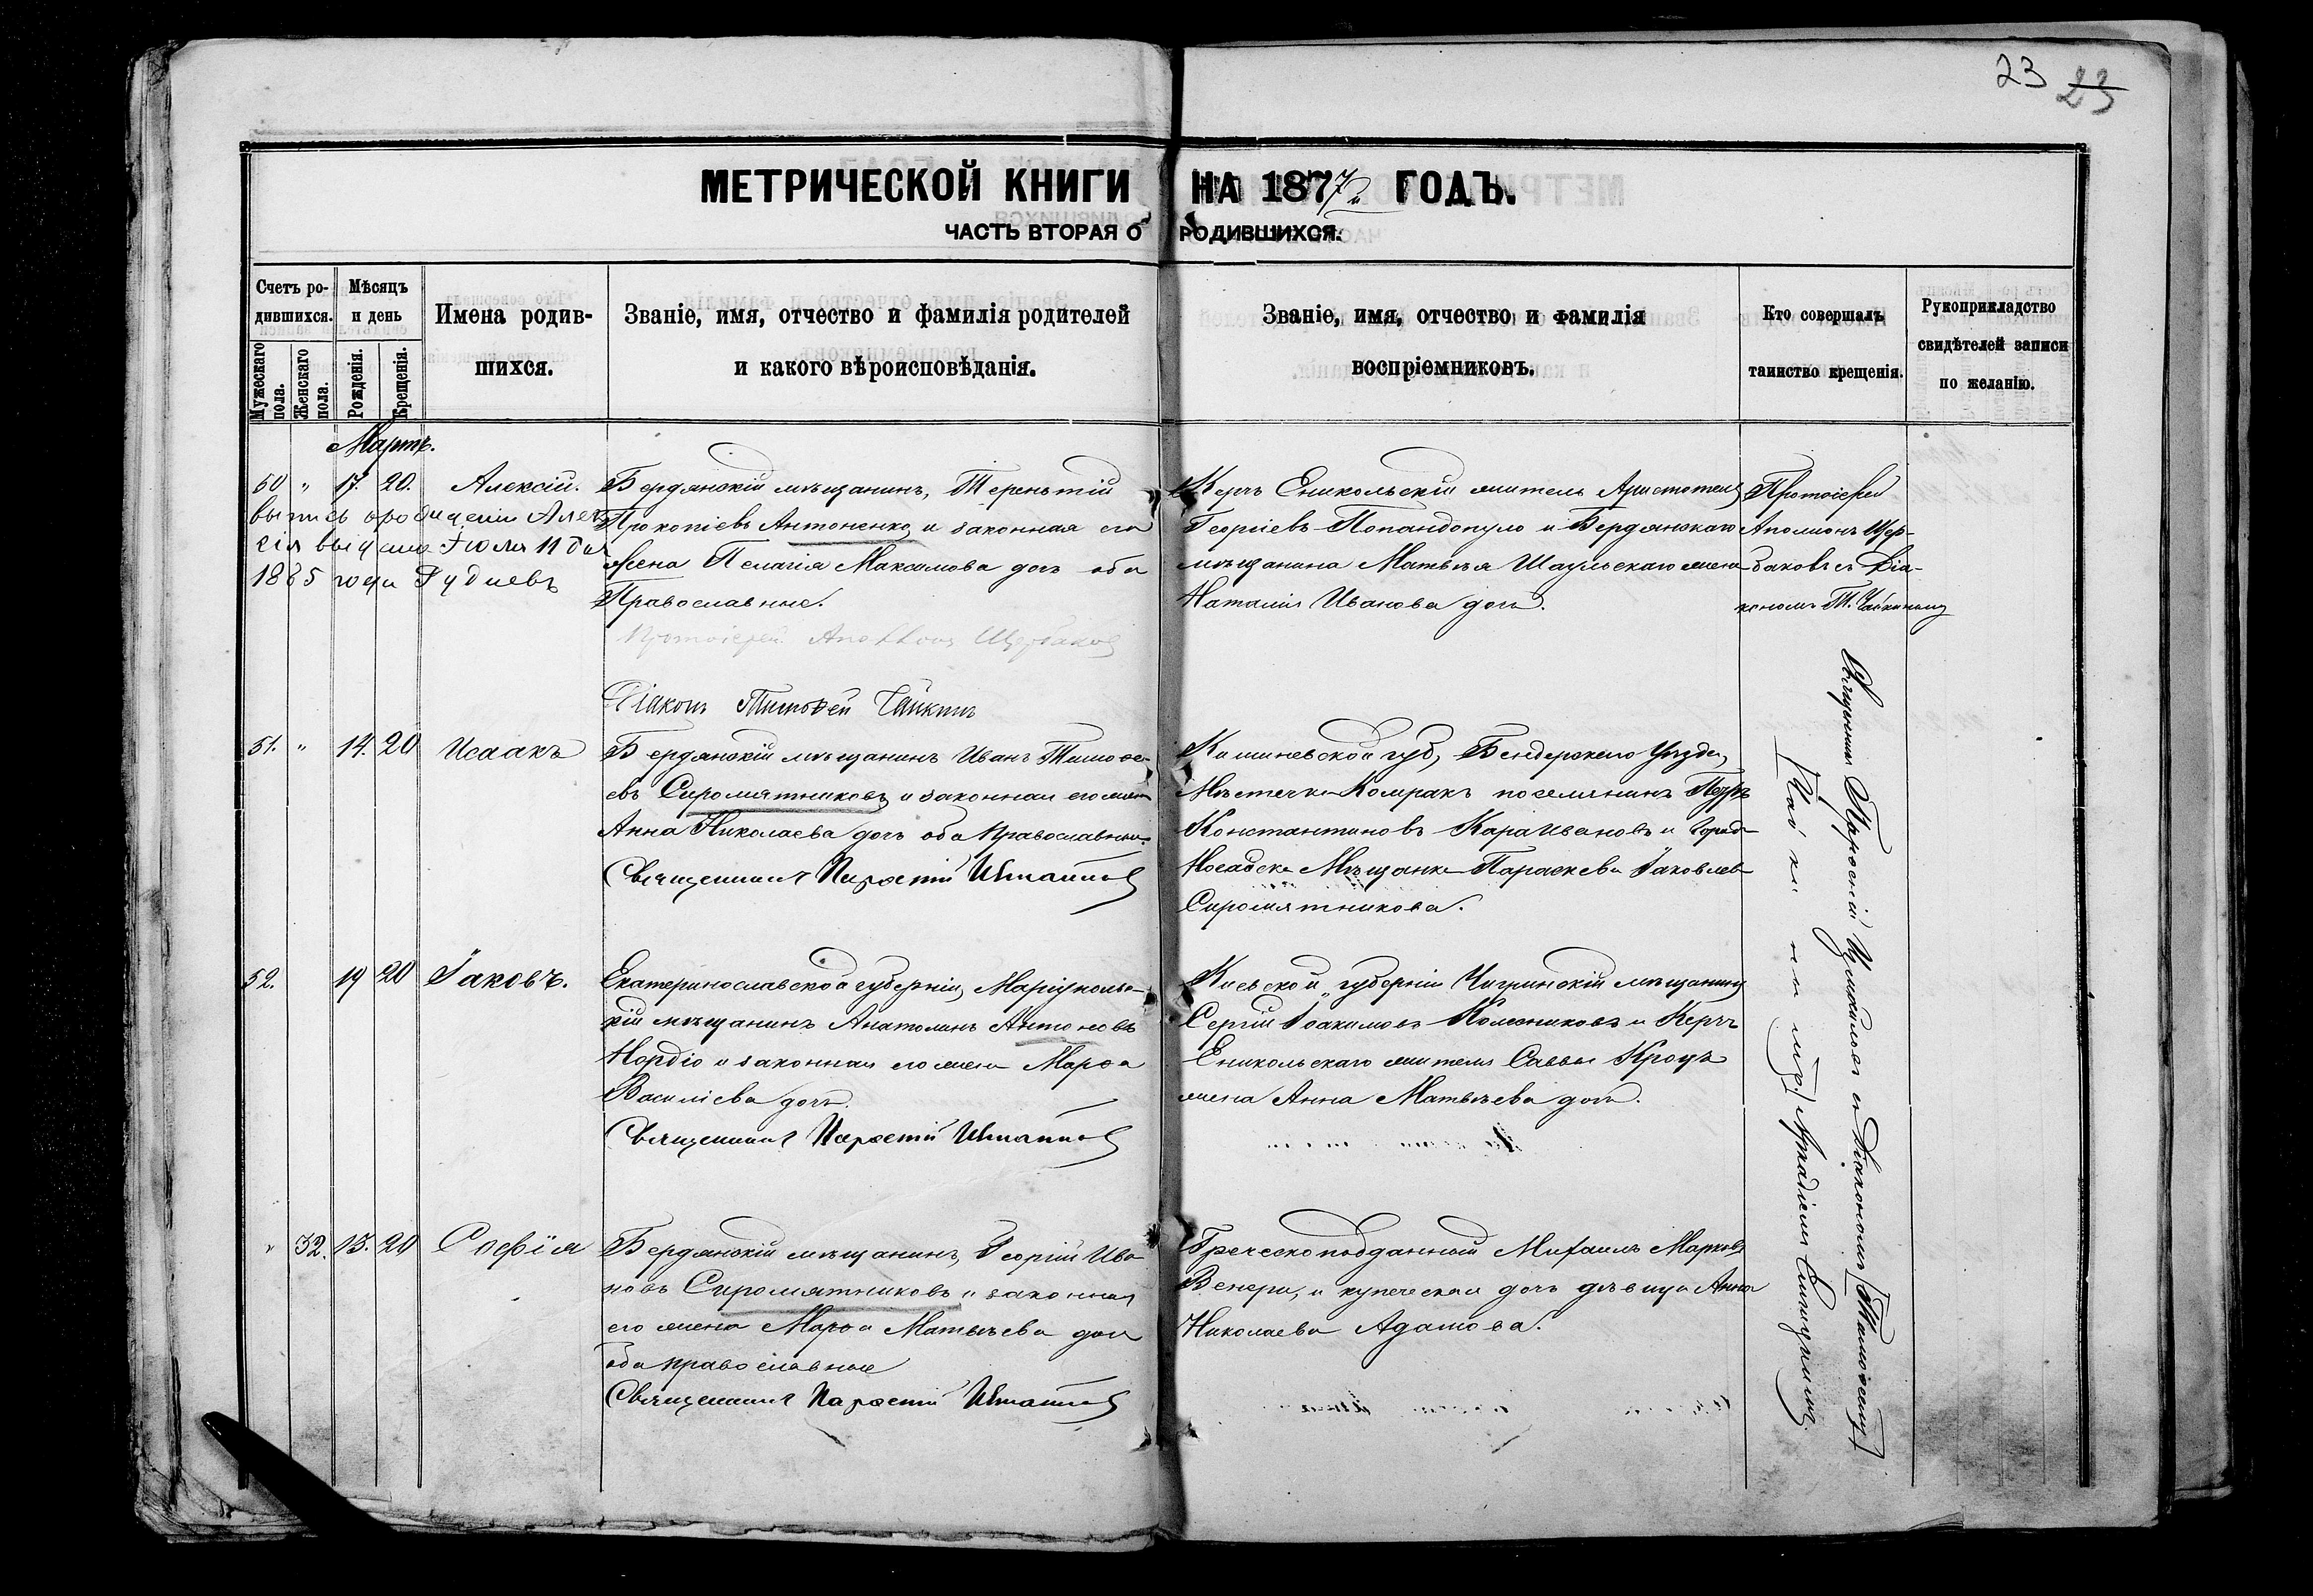 23 23
МЕТРИЧЕСКОЙ КНИГИ НА 1877 ГОДЪ.
ЧАСТЬ ВТОРАЯ О РОДИВШИХСЯ.
Счетъ ро-
дившихся.
Мужескаго пола.
Женскаго пола.
Мѣсяцъ
и день
Рожденія.
Крещенія.
Имена родив-
шихся.
Званіе, имя, отчество и фамилія родителей
и какого вѣроисповѣданія.
Званіе, имя, отчество и фамилія
воспріемниковъ.
Кто совершалъ
таинство крещенія.
Рукоприкладство
свидѣтелей записи
по желанію.
Мартъ.
50 " 17. 20. Алексій.
выпись о рожденіи Алек
сія выдана Іюля 11 дня
1885 года Гудиевъ
Бердянскій мѣщанинъ, Терентій
Прокопіевъ Антоненко, и законная его
жена Пелагія Максимова дочь оба
Православные.
Протоіерей Аполлонъ Щербаковъ
Діаконъ Тимофей Чайкинъ
Керчь Еникольскій житель Аристотель
Георгіевъ Попандопуло и Бердянскаго
мѣщанина Матвѣя Шаульскаго жена
Наталія Иванова дочь.
Протоіерей
Аполлонъ Щер-
баковъ съ Діа-
кономъ Т. Чайкинымъ
51. " 14. 20 Исаакъ
Бердянскій мѣщанинъ Иванъ Тимофе-
евъ Сиромятниковъ и законная его жена
Анна Николаева дочь оба православные.
Священникъ
Кишиневской губ, Бендерскаго Уѣзда,
Мѣстечка Комракъ поселянинъ Петръ
Константиновъ Караивановъ и город
Мѣщанка Параскева Іаковлева
Сиромятникова.
52. 19 20 Іаковъ.
Екатеринославской губерніи, Маріуполь-
скій мѣщанинъ Анатолинъ Антоновъ
Нордіо и законная его жена Марфа
Василіева дочь.
Священникъ
Кіевской губерніи Чигринскій мѣщанинъ
Сергій Іоакимовъ Колесниковъ и Керчь
Еникольскаго жителя Саввы Кроуъ
жена Анна Матвѣева дочь.
" 32. 13. 20 Софія
Бердянскій мѣщанинъ, Георгій Ива-
новъ Сиромятниковъ и законная
его жена Марфа Матвѣева дочь
оба православные
Священникъ
Греческоподданный Михаилъ Марковъ
Венери, и купеческая дочь дѣвица Анна
Николаева Адамова.
Священникъ съ Діакономъ [Тимофеемъ]
[Чайкинымъ]